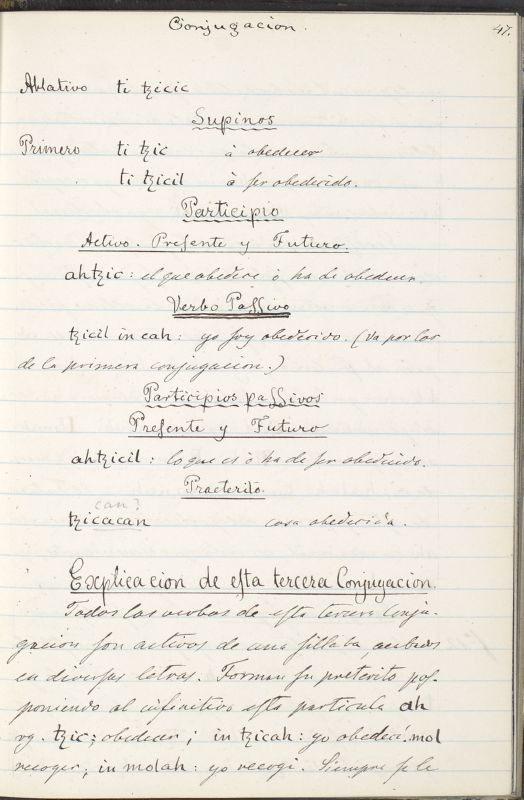 Conjugacion.
47.
Ablativo ti tzicic
Supinos
Primero ti tzic à obedecer
ti tzicil à ser obedecido.
Participio
Activo. Presente y Futuro.
ahtzic: el que obedece ò ha de obedecer.
Verbo Passivo
tzicil in cah: yo soy obedecido. (Va por las
de la primera conjugacion.)
Participios passivos
Presente y Futuro
ahtzicil: lo que es ò ha de ser obedecido.
Praeterito.
can?
tzicacan cosa obedecida.
Explicacion de esta tercera Conjugacion.
Todos los verbos de esta tercera conju-
gacion son activos de una sillaba acabados
en diversas letras. Forman su preterito pos-
poniendo al infinitivo esta particula ah
vg. tzic; obedecer; in tzicah: yo obedecí. mol
recoger; in molah: yo recogi. Siempre se le